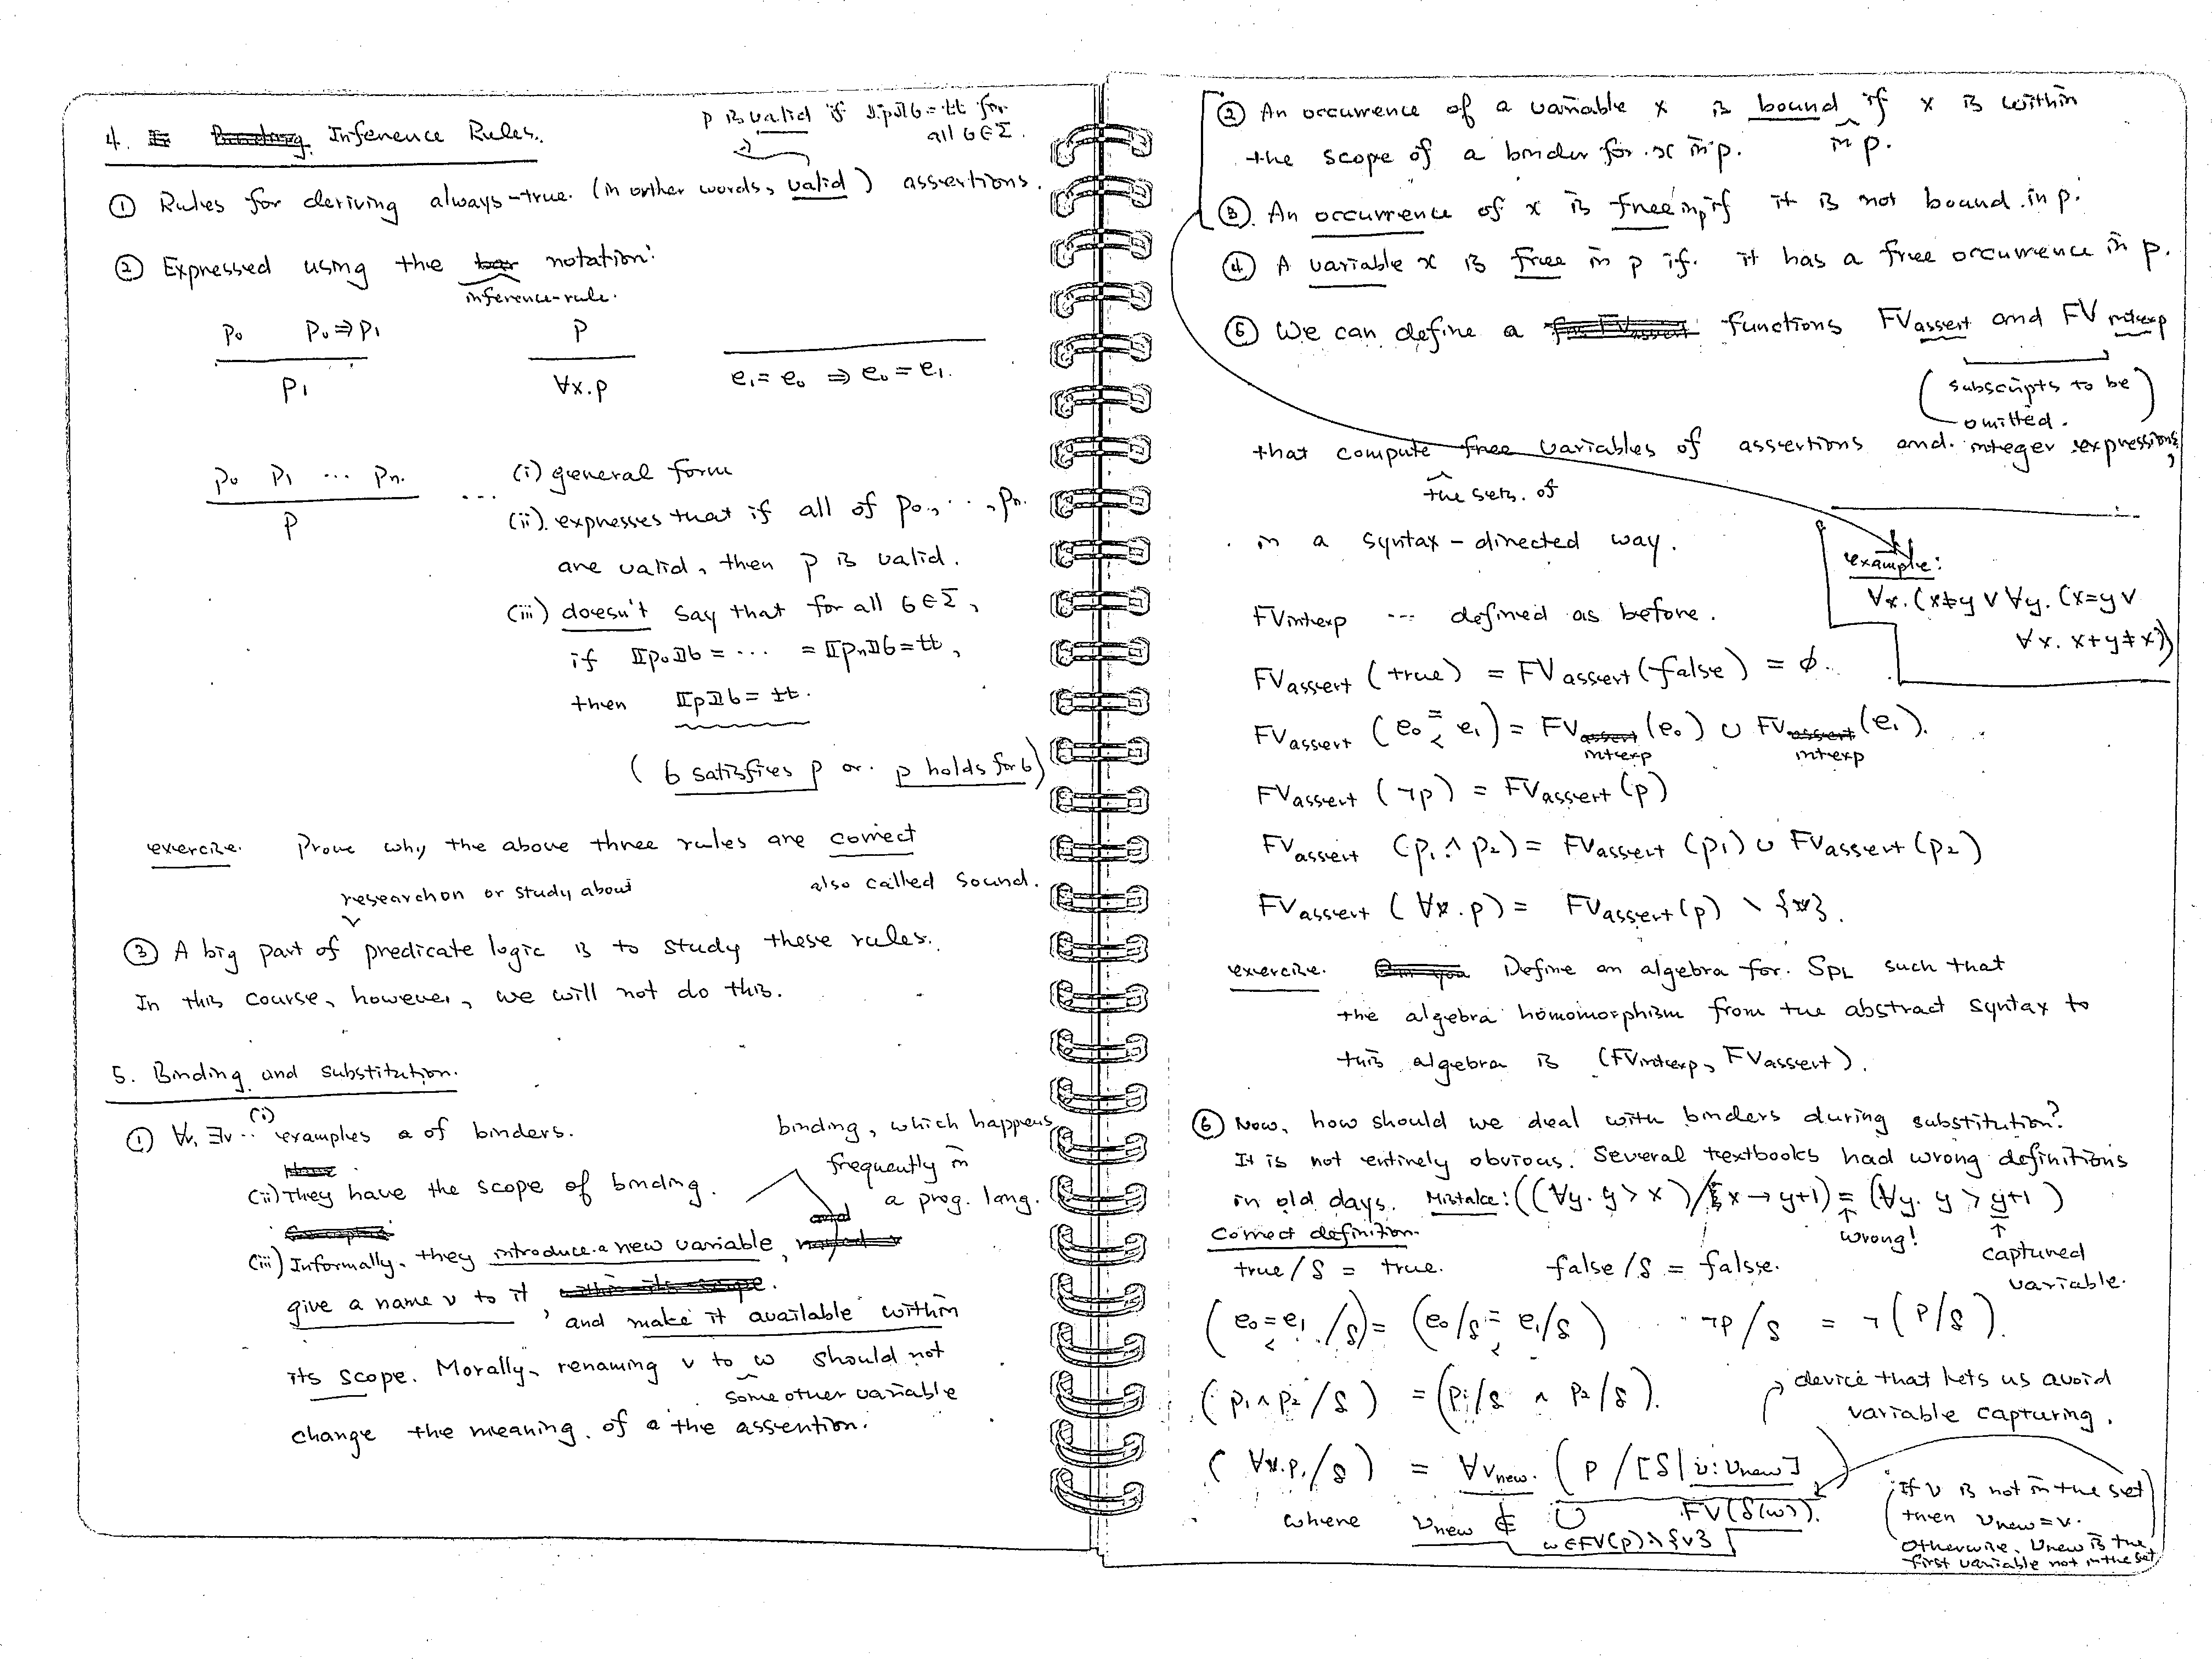 4. Inference Rules.
p is valid if ⟦p⟧σ = tt for
all σ∈Σ.
① Rules for deriving always-true. (in orther words, valid) assertions.
② Expressed using the notation:
inference-rule.
p₀ p₀⇒p₁
p₁
p
∀x.p
e₁=e₀ ⇒ e₀=e₁.
p₀ p₁ ... pn.
p
... (i) general form
(ii). expresses that if all of p₀, ..., pn.
are valid, then p is valid.
(iii) doesn't say that for all σ∈Σ,
if ⟦p₀⟧σ = ... = ⟦pn⟧σ = tt,
then ⟦p⟧σ = tt.
(σ satisfies p or. p holds for σ)
exercise. Prove why the above three rules are correct
also called sound.
research on or study about
③ A big part of predicate logic is to study these rules.
In this course, however, we will not do this.
5. Binding and substitution.
① ∀v, ∃v ... (i) examples a of binders.
(ii) They have the scope of binding.
binding, which happens
frequently in
a prog. lang.
(iii) Informally, they introduce a new variable, and
give a name v to it, and make it available within
its scope. Morally, renaming v to w should not
some other variable
change the meaning of a the assertion.
② An occurrence of a variable x is bound if x is within
in p.
the scope of a binder for x in p.
③ An occurrence of x is free in p if it is not bound in p.
④ A variable x is free in p if. it has a free occurrence in p.
⑤ We can define a functions FVassert and FVintexp
(subscripts to be
omitted.)
that compute free variables of assertions and integer expressions,
the sets of
in a syntax-directed way.
example:
∀x.(x≠y ∨ ∀y.(x=y ∨
∀x. x+y≠x))
FVintexp ... defined as before.
FVassert (true) = FVassert (false) = ∅.
FVassert (e₀ = e₁) = FV (e₀) ∪ FV (e₁).
< intexp intexp
FVassert (¬p) = FVassert (p)
FVassert (p₁ ∧ p₂) = FVassert (p₁) ∪ FVassert (p₂)
FVassert (∀v.p) = FVassert (p) \ {v}.
exercise. Define an algebra for. SPL such that
the algebra homomorphism from the abstract syntax to
this algebra is (FVintexp, FVassert).
⑥ Now, how should we deal with binders during substitution?
It is not entirely obvious. Several textbooks had wrong definitions
in old days. Mistake: ((∀y. y > x) / x → y+1) = (∀y. y > y+1)
wrong!
captured
variable.
Correct definition.
true/δ = true. false/δ = false.
(e₀ = e₁ /δ) = (e₀/δ = e₁/δ) ¬p/δ = ¬(p/δ).
< <
(p₁∧p₂/δ) = (p₁/δ ∧ p₂/δ).
device that lets us avoid
variable capturing.
(∀v.p./δ) = ∀vnew. (p/[δ|v:vnew])
where vnew ∉ ∪ FV(δ(w)).
w∈FV(p)\{v}
(If v is not in the set
then vnew = v.
Otherwise, vnew is the
first variable not in the set)